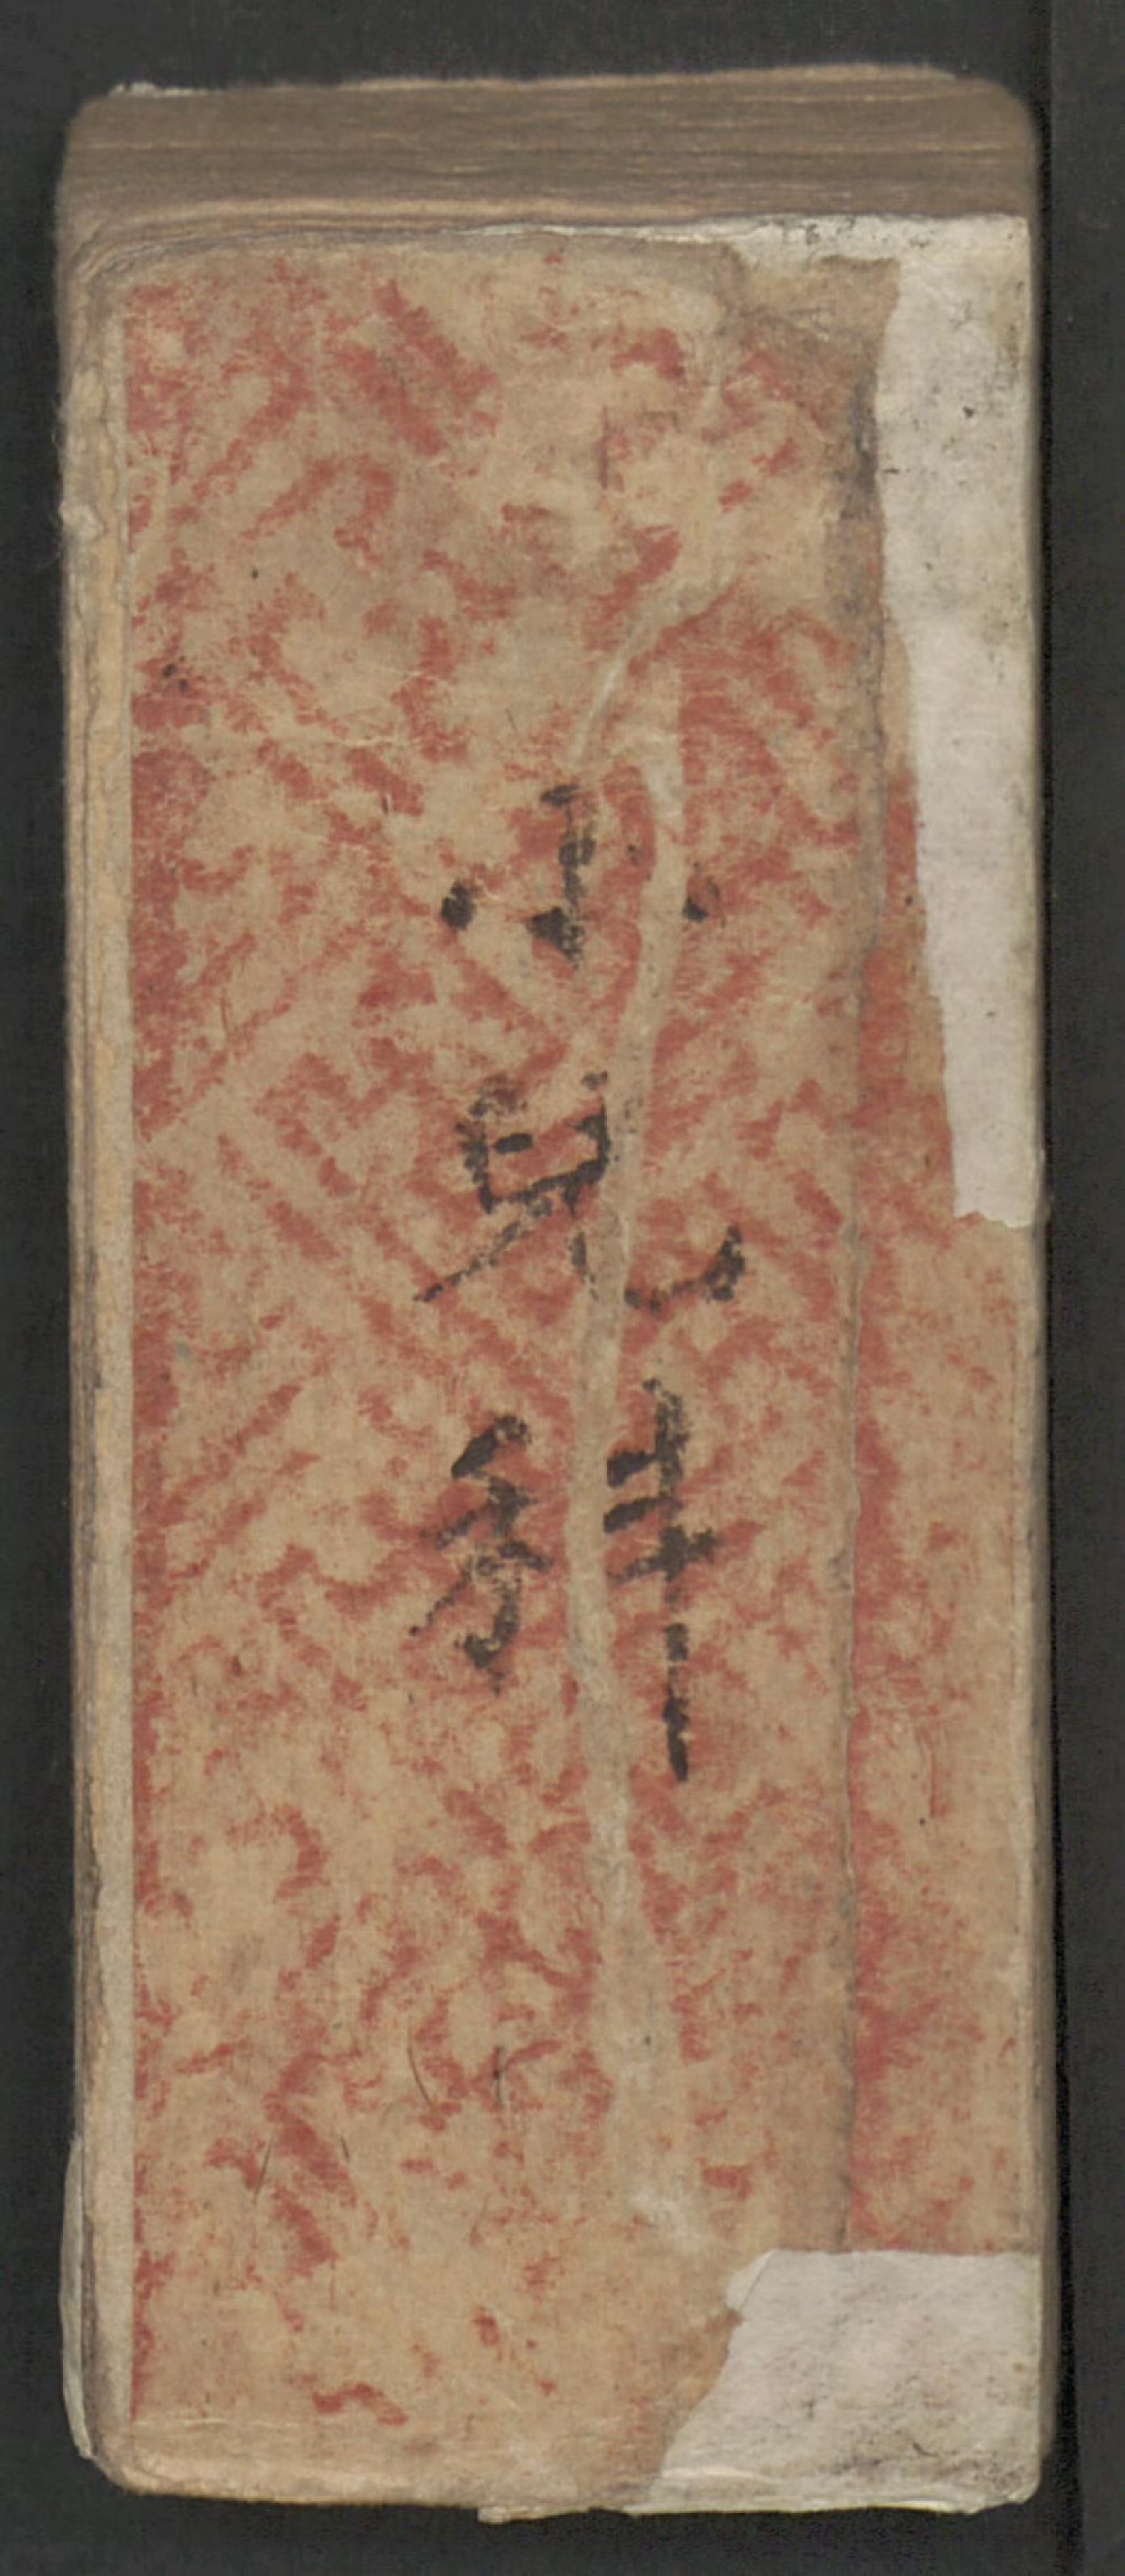 小兒科